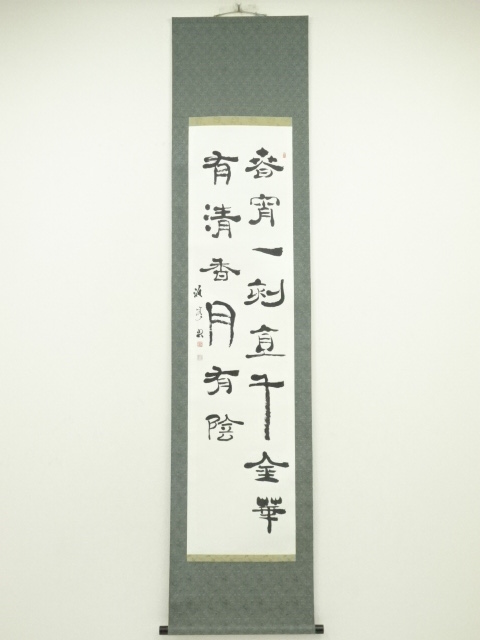 春宵一刻直千金華
有清香月有陰